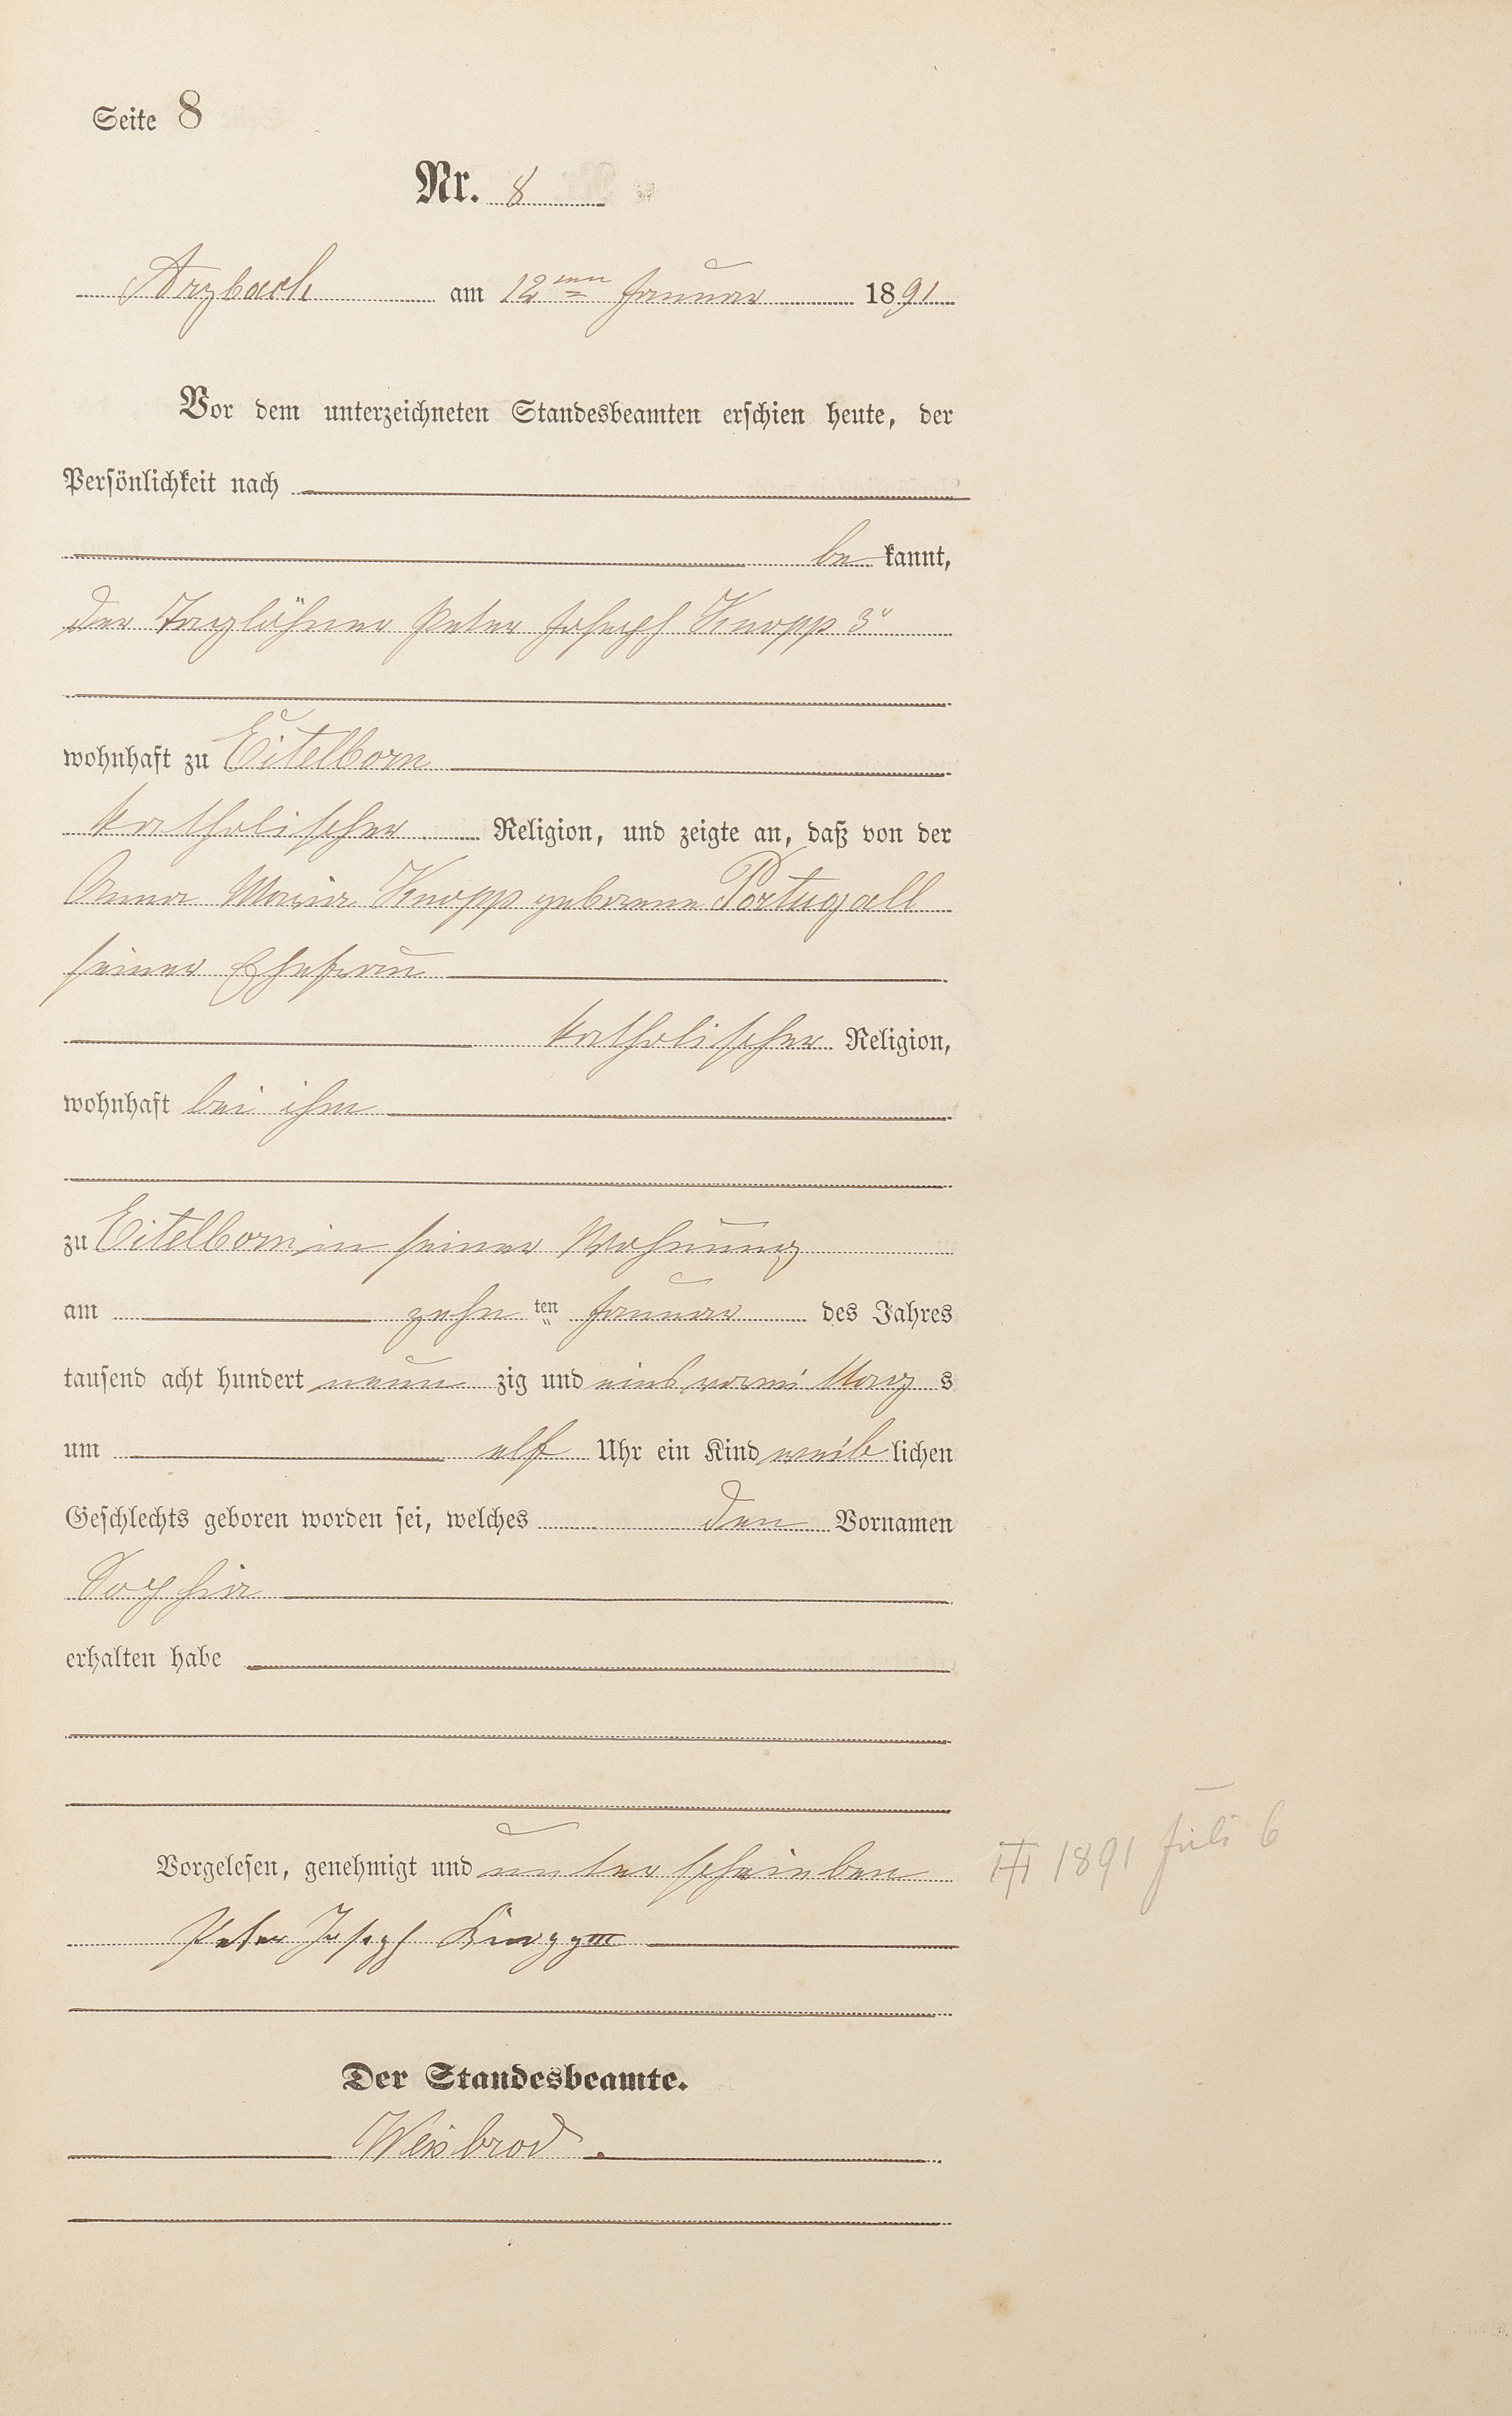 Seite 8
Nr. 8
Arzbach am 12ten Januar 1891
Vor dem unterzeichneten Standesbeamten erschien heute, der
Persönlichkeit nach
bekannt,
der Taglöhner Peter Joseph Knopp 3r
wohnhaft zu Eitelborn
katholischer Religion, und zeigte an, daß von der
Anna Maria Knopp geborene Portugall
seiner Ehefrau
katholischer Religion,
wohnhaft bei ihm
zu Eitelborn in seiner Wohnung
am zehnten Januar des Jahres
tausend acht hundert neunzig und eins vormi
um elf Uhr ein Kind weiblichen
Geschlechts geboren worden sei, welches den Vornamen
Sophia
erhalten habe
Vorgelesen, genehmigt und unterschrieben
1891 Juli 6
Peter Joseph Knopp III
Der Standesbeamte.
Weisbrod.